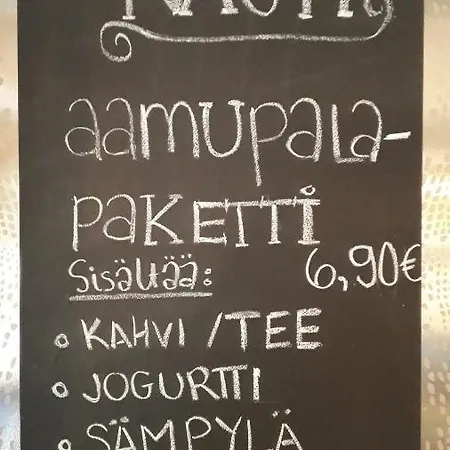 aamupala-
PAKETTI
Sisältää:
6,90€
• KAHVI / TEE
• JOGURTTI
• SÄMPYLÄ